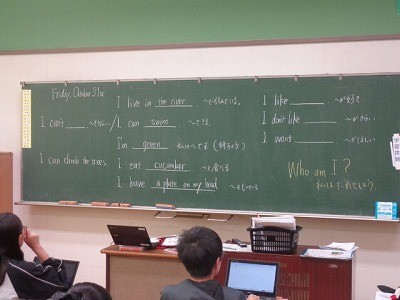 Friday, October 21st
I can't ____ ~できない
I can climb the trees.
I live in the river ~に住んでいる。
I can swim ~できる
I'm green
I eat cucumber ~を食べる
I have a plate on my head
I like ____ ~が好き
I don't like ____
I want ____ ~がほしい
Who am I?
わたしはだれでしょう。